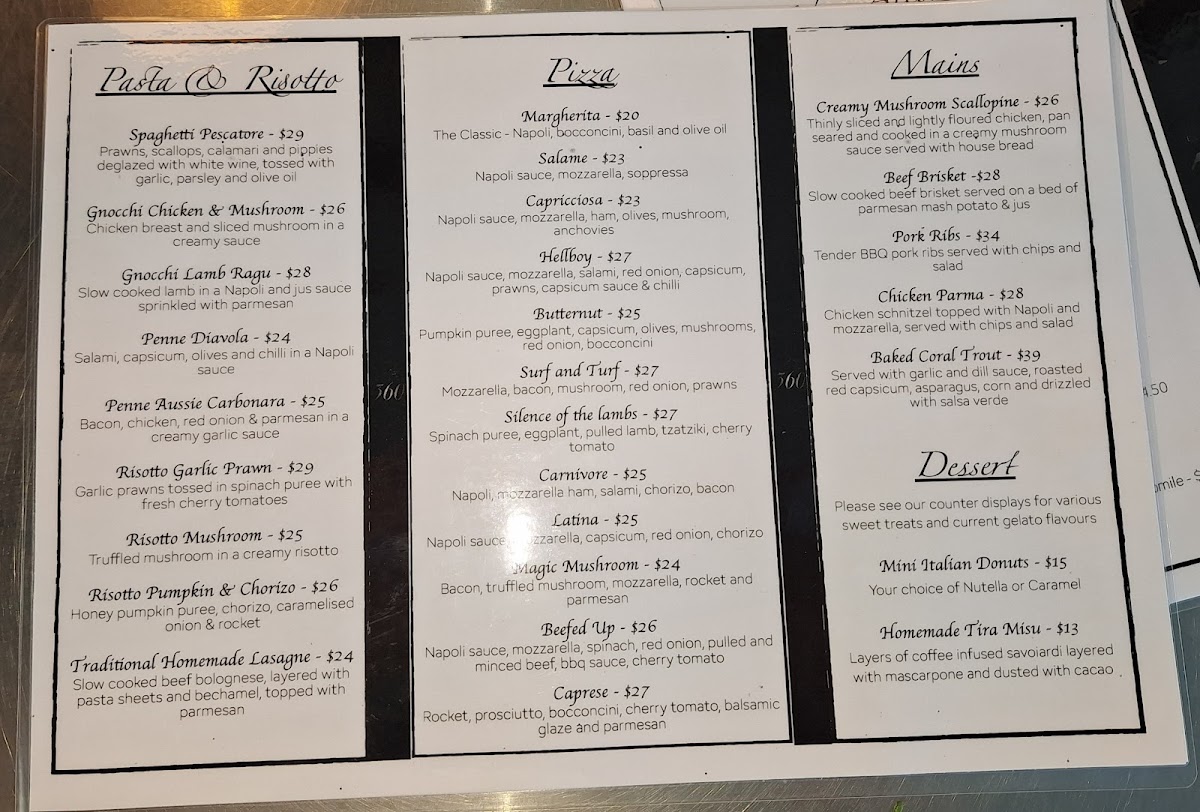 Pasta & Risotto
Spaghetti Pescatore - $29
Prawns, scallops, calamari and pippies
deglazed with white wine, tossed with
garlic, parsley and olive oil
Gnocchi Chicken & Mushroom - $26
Chicken breast and sliced mushroom in a
creamy sauce
Gnocchi Lamb Ragu - $28
Slow cooked lamb in a Napoli and jus sauce
sprinkled with parmesan
Penne Diavola - $24
Salami, capsicum, olives and chilli in a Napoli
sauce
Penne Aussie Carbonara - $25
Bacon, chicken, red onion & parmesan in a
creamy garlic sauce
Risotto Garlic Prawn - $29
Garlic prawns tossed in spinach puree with
fresh cherry tomatoes
Risotto Mushroom - $25
Truffled mushroom in a creamy risotto
Risotto Pumpkin & Chorizo - $26
Honey pumpkin puree, chorizo, caramelised
onion & rocket
Traditional Homemade Lasagne - $24
Slow cooked beef bolognese, layered with
pasta sheets and bechamel, topped with
parmesan
360
Pizza
Margherita - $20
The Classic - Napoli, bocconcini, basil and olive oil
Salame - $23
Napoli sauce, mozzarella, soppressa
Capricciosa - $23
Napoli sauce, mozzarella, ham, olives, mushroom,
anchovies
Hellboy - $27
Napoli sauce, mozzarella, salami, red onion, capsicum,
prawns, capsicum sauce & chilli
Butternut - $25
Pumpkin puree, eggplant, capsicum, olives, mushrooms,
red onion, bocconcini
Surf and Turf - $27
Mozzarella, bacon, mushroom, red onion, prawns
Silence of the lambs - $27
Spinach puree, eggplant, pulled lamb, tzatziki, cherry
tomato
Carnivore - $25
Napoli, mozzarella ham, salami, chorizo, bacon
Latina - $25
Napoli sauce, mozzarella, capsicum, red onion, chorizo
Magic Mushroom - $24
Bacon, truffled mushroom, mozzarella, rocket and
parmesan
Beefed Up - $26
Napoli sauce, mozzarella, spinach, red onion, pulled and
minced beef, bbq sauce, cherry tomato
Caprese - $27
Rocket, prosciutto, bocconcini, cherry tomato, balsamic
glaze and parmesan
360
Mains
Creamy Mushroom Scallopine - $26
Thinly sliced and lightly floured chicken, pan
seared and cooked in a creamy mushroom
sauce served with house bread
Beef Brisket -$28
Slow cooked beef brisket served on a bed of
parmesan mash potato & jus
Pork Ribs - $34
Tender BBQ pork ribs served with chips and
salad
Chicken Parma - $28
Chicken schnitzel topped with Napoli and
mozzarella, served with chips and salad
Baked Coral Trout - $39
Served with garlic and dill sauce, roasted
red capsicum, asparagus, corn and drizzled
with salsa verde
Dessert
Please see our counter displays for various
sweet treats and current gelato flavours
Mini Italian Donuts - $15
Your choice of Nutella or Caramel
Homemade Tira Misu - $13
Layers of coffee infused savoiardi layered
with mascarpone and dusted with cacao